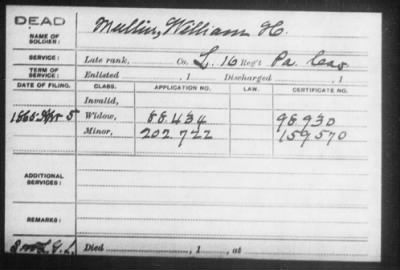 DEAD
NAME OF SOLDIER: Mullin, William H.
SERVICE: Late rank, Co. L. 16 Reg't Pa. Cav.
TERM OF SERVICE: Enlisted , 1 Discharged , 1
DATE OF FILING. CLASS. APPLICATION NO. LAW. CERTIFICATE NO.
Invalid,
1865 Apr 5 Widow, 88.434 98.930
Minor, 202.722 159.570
ADDITIONAL SERVICES:
REMARKS:
Died , 1 , at